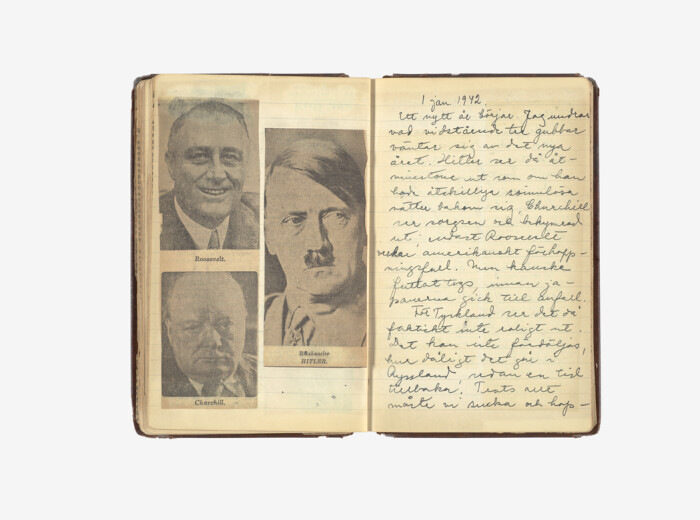 Roosevelt.
Churchill.
HITLER.
1 jan 1942.
Ett nytt år börjar. Jag undrar
vad vidstående tre gubbar
väntar sig av det nya
året. Hitler ser då åt-
minstone ut som om han
hade åtskilliga sömnlösa
nätter bakom sig, Churchill
ser sorgsen och bekymrad
ut, endast Roosevelt
verkar amerikanskt förhopp-
ningsfull. Men kanske
fotot togs, innan ja-
panerna gick till anfall.
För Tyskland ser det då
faktiskt inte roligt ut.
Det kan inte fördöljas,
hur dåligt det går i
Ryssland, sedan en tid
tillbaka. Trots allt
måste vi sucka och hop-